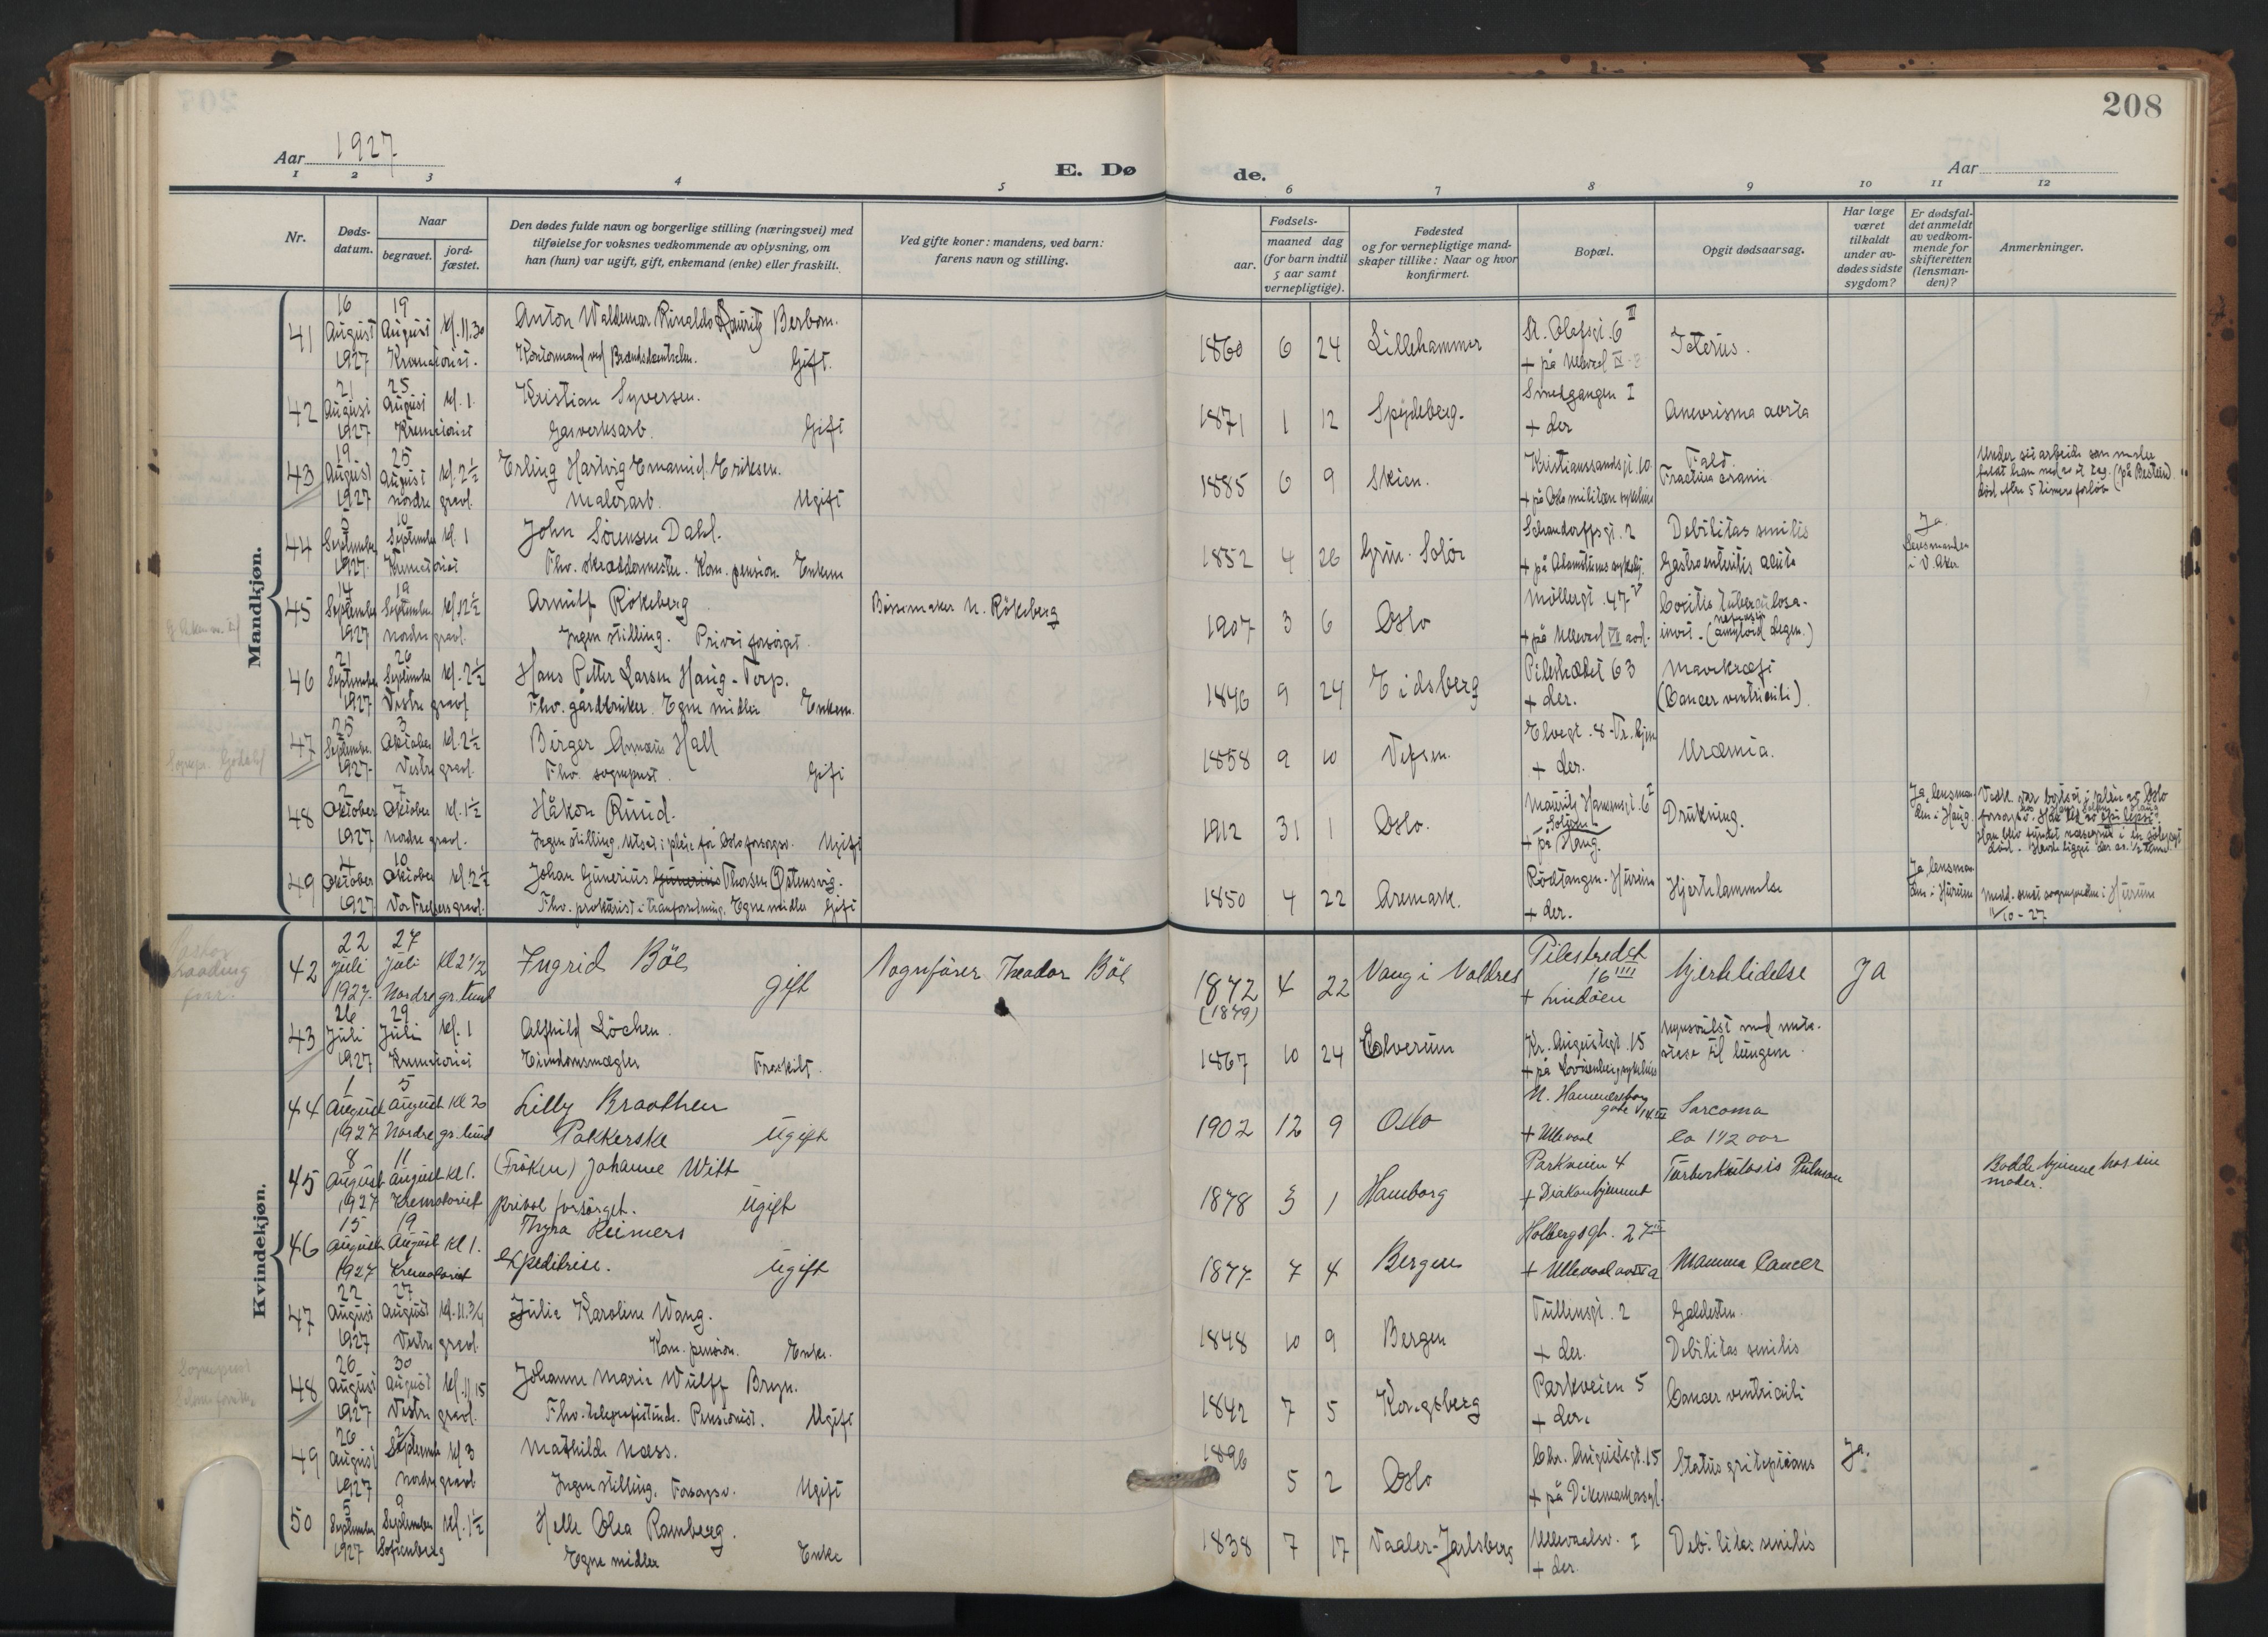 208
Aar 1927
E. Dø
de.
Aar
1 2 3 4 5 6 7 8 9 10 11 12
Nr.
Døds-
datum.
Naar
begravet.
jord-
fæstet.
Den dødes fulde navn og borgerlige stilling (næringsvei) med
tilføielse for voksnes vedkommende av oplysning, om
han (hun) var ugift, gift, enkemand (enke) eller fraskilt.
Ved gifte koner: mandens, ved barn:
farens navn og stilling.
Fødsels-
aar.
maaned dag
(for barn indtil
5 aar samt
vernepligtige).
Fødested
og for vernepligtige mand-
skaper tillike: Naar og hvor
konfirmert.
Bopæl.
Opgit dødsaarsag.
Har læge
været
tilkaldt
under av-
dødes sidste
sygdom?
Er dødsfal-
det anmeldt
av vedkom-
mende for
skifteretten
(lensman-
den)?
Anmerkninger.
Mandkjøn.
16 19
41 August August kl. 11.30 Anton Waldemar Rinaldo Lauritz Berbom. 1860 6 24 Lillehammer St. Olafsgt. 6 II Icterus.
1927 Krematoriet. Gift. + på Ullevaal
21 25
42 August August kl. 1 Kristian Syversen. 1871 1 12 Spydeberg. Smedgangen I Aneurisma aorta
1927 Krematoriet Gasverksarb. Gift + der
19 25
43 August August kl. 2½ Erling Hartvig Emanuel Eriksen. 1885 6 9 Skien. Kristianssandsgt. 10 Fald. Fractura cranii
1927 nordre gravl. Malerarb. Ugift + på Oslo militære sykehus
Under sit arbeide som maler
faldt han ned av et tag.
død efter 5 timers forløp
5 10
44 September September kl. 1 John Sørensen Dahl. 1852 4 26 Grue. Solør Schandorffsgt. 2 Debilitas senilis Ja.
1927 Krematoriet Fhv. skræddermester. Kom. pension. Enkem. Gastroenteritis acuta Lensmanden
i V. Aker
14 19
45 September September kl. 12½ Arnulf Rökeberg Börsemaker N. Rökeberg 1907 3 6 Oslo Möllergt. 47 V Coxitis tuberculosa.
1927 nordre gravl. Ingen stilling. Privat forsörget. + på Ullevaal VII avd. (amyloid degen.)
21 26
46 September September kl. 2½ Hans Petter Larsen Haug-Torp. 1846 9 24 Eidsberg Pilestrædet 63 Mavekræft
1927 Vestre gravl. Fhv. gårdbruker. Egne midler Enkem. + der. (Cancer ventriculi)
25 3
47 September Oktober kl. 2½ Birger Annæus Hall 1858 9 10 Vefsen. Elvegt. 8 - Uræmia.
1927 Vestre gravl. Fhv. sogneprest. Gift + der.
2 7
48 Oktober Oktober kl. 1½ Håkon Ruud. 1912 31 1 Oslo. Mauritz Hansensgt. 6 I Drukning. Ja, lensman-
den i Haug.
1927 nordre gravl. Ingen stilling. Utsat i pleie for Oslo forsorgsv. Ugift + på Haug.
4 10
49 Oktober Oktober kl. 2½ Johan Gunerius Gunerius Thorsen Östensvig. 1850 4 22 Aremark. Rödtangen - Hurum Hjertelammelse Ja, lensman-
den i Hurum
1927 Vor Frelsers gravl. Fhv. prokurist i Egne midler Gift + der. medd. sendt sognepresten i Hurum
11/10-27
Kvindekjøn.
22 27
42 Juli Juli Kl 2 1/2 Ingrid Böe Vognfører Theodor Böe 1872 4 22 Vang i Valdres Pilestredet 16 IIII hjertelidelse Ja
1927. Nordre gr.lund gift (1879) + Lindöen
26 29
43 Juli Juli kl. 1 Alfhild Löchen. 1867 10 24 Elverum Kr. Augustsgt. 15 nyresvulst med meta-
1927 Krematoriet Eiendomsmægler Fraskilt. + på Lovisenberg sykehus stase til lungene.
1 5
44 August August Kl 20 Lilly Braathen 1902 12 9 Oslo N. Hammersborg gate 14 III Sarcoma
1927 Nordre gr.lund Pakkerske Ugift + Ullevaal Ca 1 1/2 aar
8 11
45 August August Kl 1. (Fröken) Johanne Witt 1878 3 1 Hamborg Parkveien 4 Tuberkulosis Pulmon
1927 Krematoriet privat forsörget. Ugift + Diakonhjemmet
Bodde hjemme hos sin
moder.
15 19
46 August August Kl 1. Thyra Reimers 1877 7 4 Bergen Holbergsgt. 27 III Mamma Cancer
1927 Krematoriet Expeditrise. Ugift
22 27
47 August August kl. 11.3/4 Julie Karoline Wang. 1848 10 9 Bergen Tullinsgt. 2 Galdesten.
1927 Vestre gravl. Kom. pension. Enke. + der. Debilitas senilis
26 30
48 August August kl. 11 15 Johanne Marie Wulff Bryn. 1842 7 5 Kongsberg Parkveien 5 Cancer ventriculi
1927 Vestre gravl. Fhv. telegrafistinde. Pensionist. Ugift + der.
26 2
49 August September kl 3 Mathilde Næss. 1896 5 2 Oslo Chr. Augustsgt. 15 Ja.
1927 Nordre gravl Ingen stilling. Forsorgsv. Ugift + på Dikemark asyl.
5 9
50 September September kl. 1½ Helle Olea Ramberg. 1838 7 17 Vaaler-Jarlsberg Ullevaalsv. I Debilitas senilis
1927 Sofienberg Egne midler Enke + der.